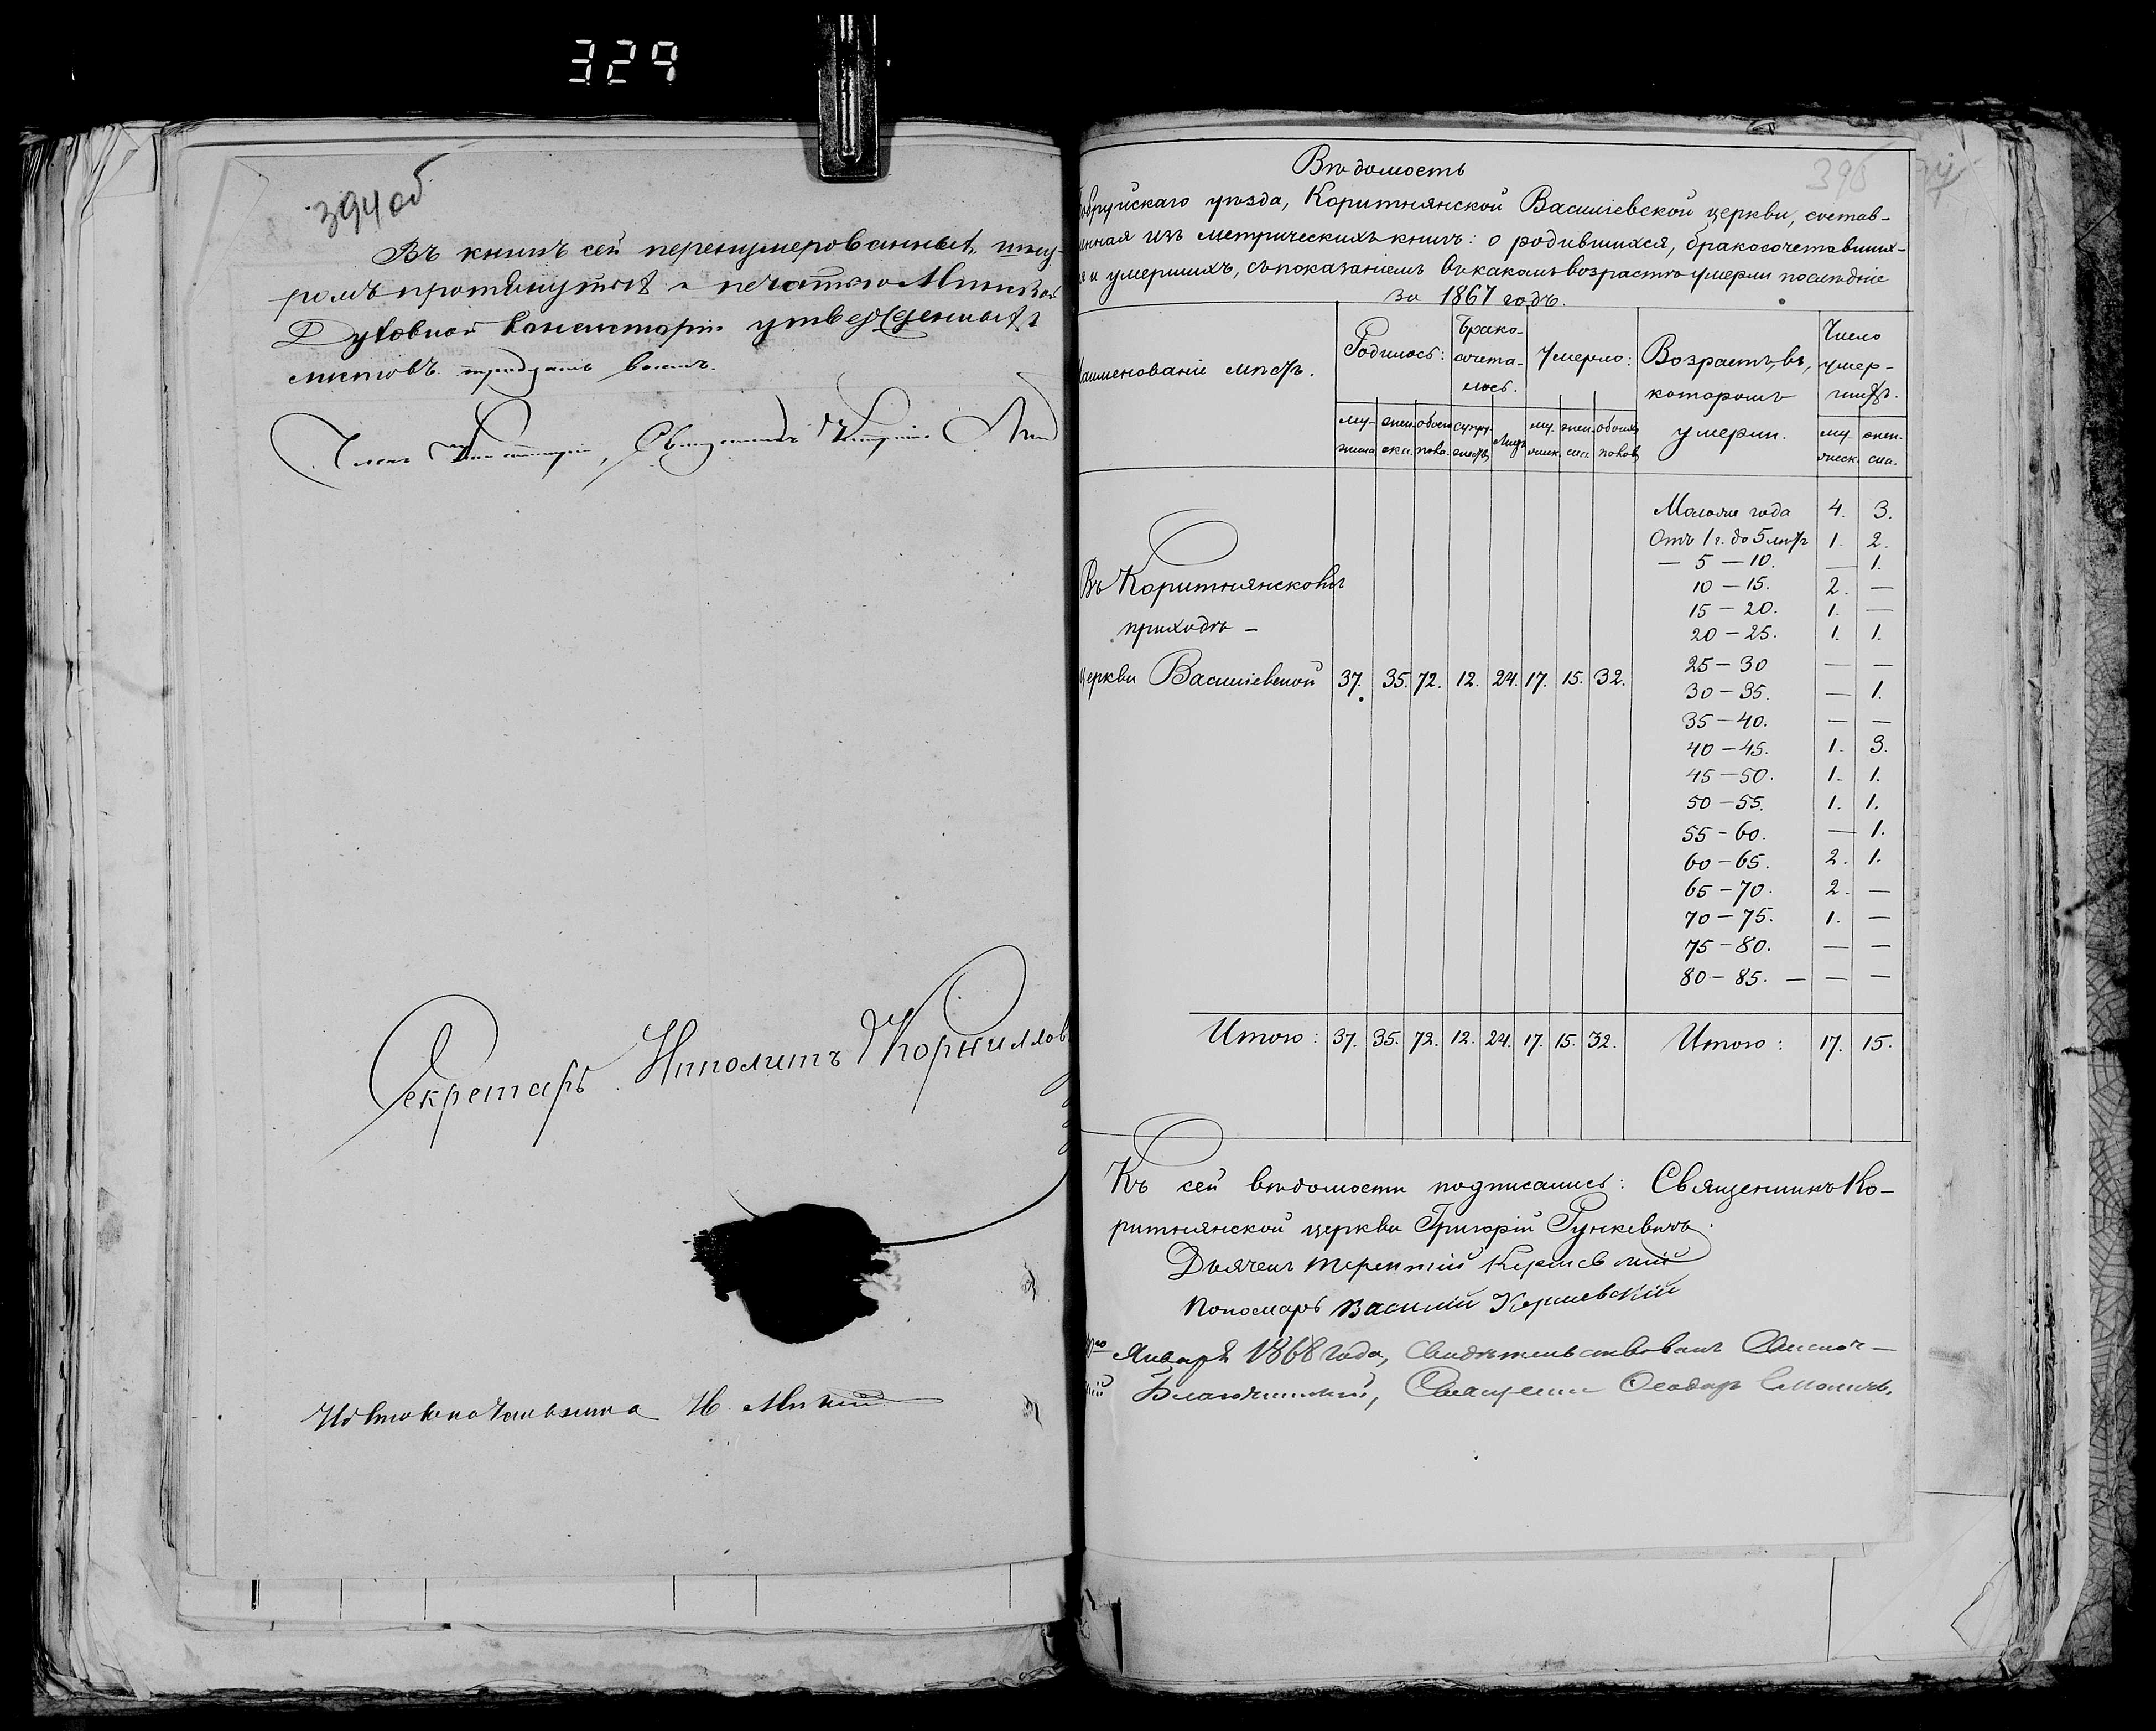 329
394 об
Въ книгѣ сей перенумерованныхъ, шну-
ромъ протянутыхъ и печатью Минской
Духовной Консисторіи утвержденныхъ
листовъ тридцать восемь.
Членъ Консисторіи, Священникъ
Секретарь Ипполитъ Корнилов
И. д. Столоначальника И.
395
Вѣдомость
Бобруйскаго уѣзда, Коритнянской Васильевской церкви, состав-
ленная изъ метрическихъ книгъ: о родившихся, бракосочетавших-
ся и умершихъ, съ показаніемъ въ какомъ возрастѣ умерли послѣдніе
за 1867 годъ.
Наименованіе мѣстъ. Родилось: Брако- сочета- лось. Умерло: Возрастъ, въ которомъ умерли. Число умер- шихъ.
му- жеска женс- ска. обоего пола. супру- жествъ Лицъ му- жеск. жен. ска обоихъ половъ му- жеск. жен- ска.
Моложе года 4. 3.
Отъ 1 г. до 5 лѣтъ 1. 2.
— 5 — 10. — 1.
Въ Коритнянскомъ 10 — 15. 2. —
15 — 20. 1. —
приходѣ — 20 — 25. 1. 1.
25 — 30 — —
церкви Васильевской 37. 35. 72. 12. 24. 17. 15. 32. 30 — 35. — 1.
35 — 40. — —
40 — 45. 1. 3.
45 — 50. 1. 1.
50 — 55. 1. 1.
55 — 60. — 1.
60 — 65. 2. 1.
65 — 70. 2. —
70 — 75. 1. —
75 — 80. — —
80 — 85. — — —
Итого: 37. 35. 72. 12. 24. 17. 15. 32. Итого: 17. 15.
Къ сей вѣдомости подписались: Священникъ Ко-
ритнянской церкви Григорій Рункевичъ.
Дьячекъ Терентій
Пономарь Василій
Января 1868 года, Свидѣтельствовалъ
Благочинный, Священникъ Ѳеодоръ Смоличъ.